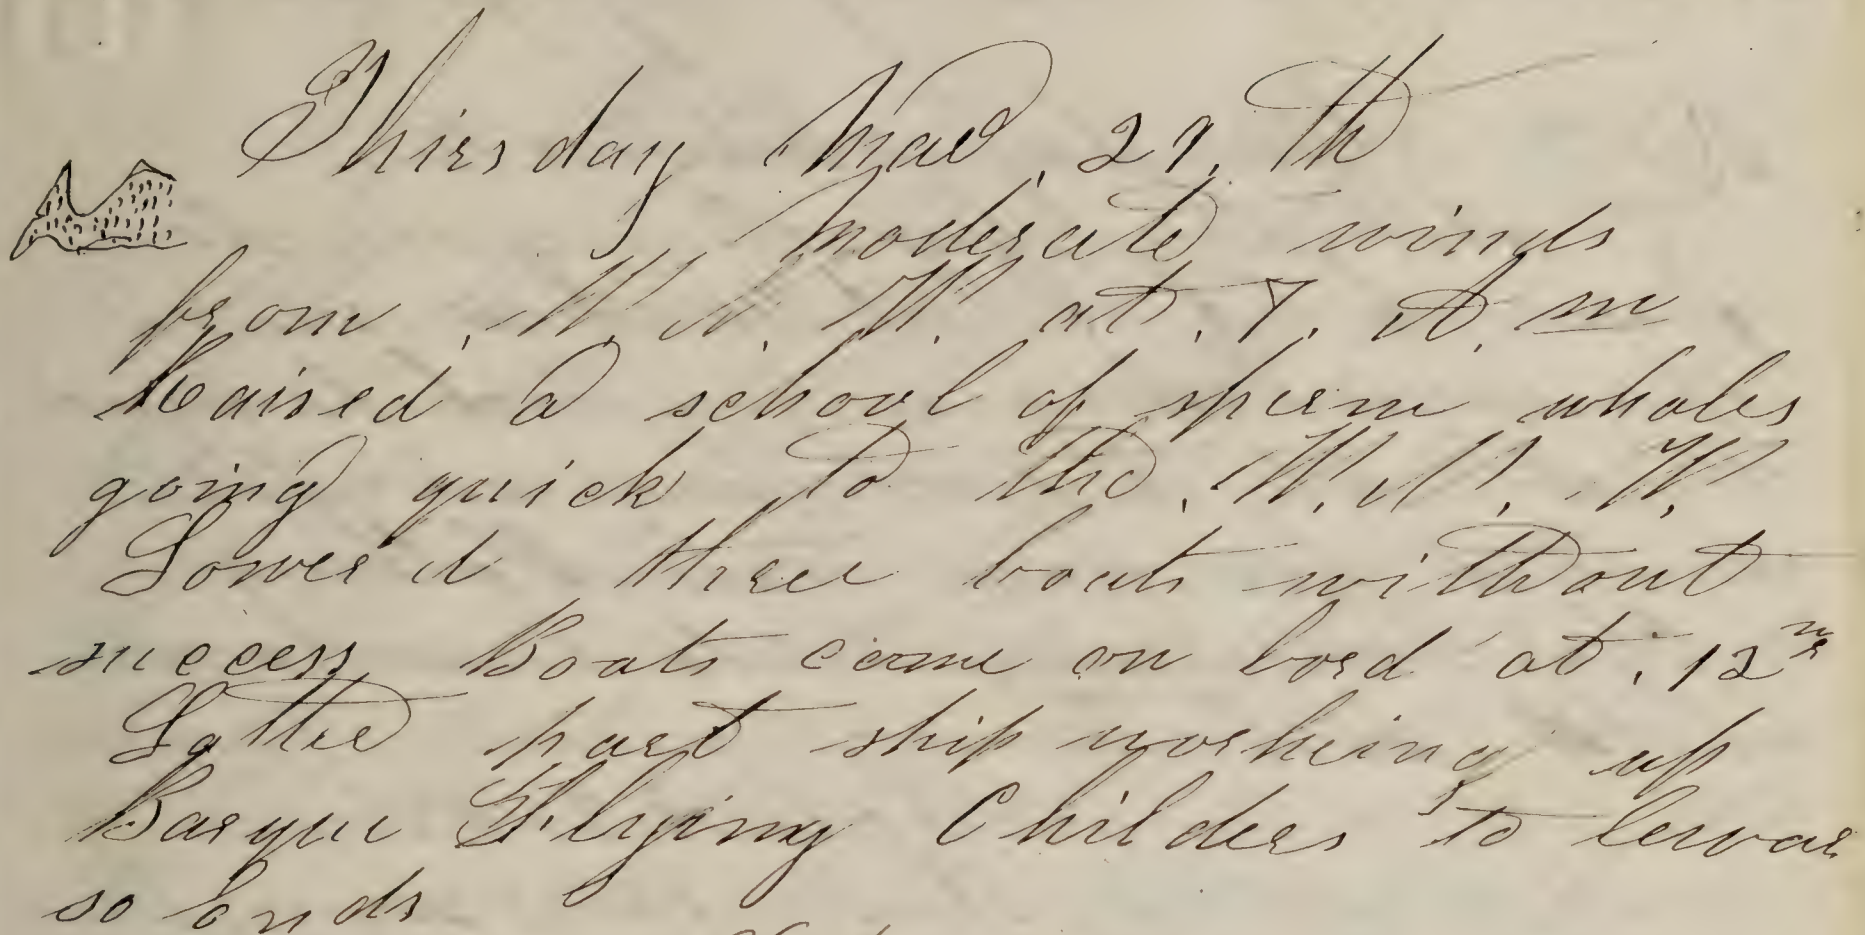 Thirsday 29. th
moderate winds
from . W. N. W. at . 7. A. m
Raised a school of sperm whales
going quick to the . W. N. W.
Lower d three boats without
success Boats came on bord at . 12
Latter part ship working up
Barque Flying Childers to lewar
so Ends